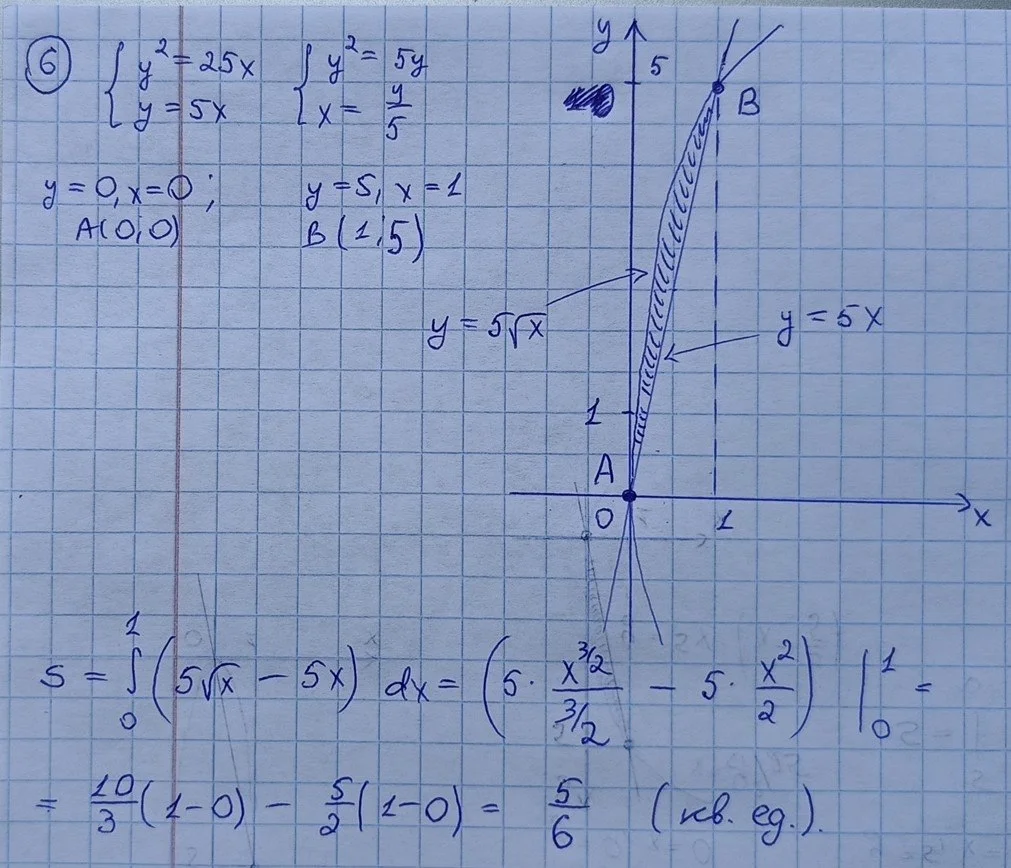 6 { y² = 25x { y² = 5y
y = 5x x = y/5
y = 0, x = 0 ; y = 5, x = 1
A(0;0) B(1;5)
y
5
B
y = 5√x
y = 5x
1
A
0 1 x
S = ∫₀¹ (5√x − 5x) dx = (5 · x^(3/2)/(3/2) − 5 · x²/2) |₀¹ =
= 10/3 (1−0) − 5/2 (1−0) = 5/6 (кв. ед.).